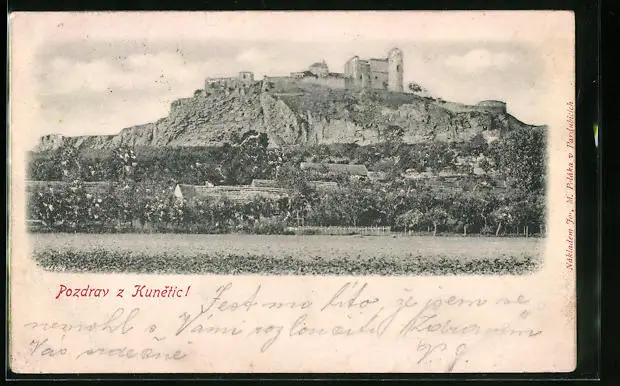 Pozdrav z Kunětic!
Jest mi líto, že jsem se
nemohl s Vámi rozloučiti
Vás srdečně
Nákladem Jos. M. Poláka v Pardubicích